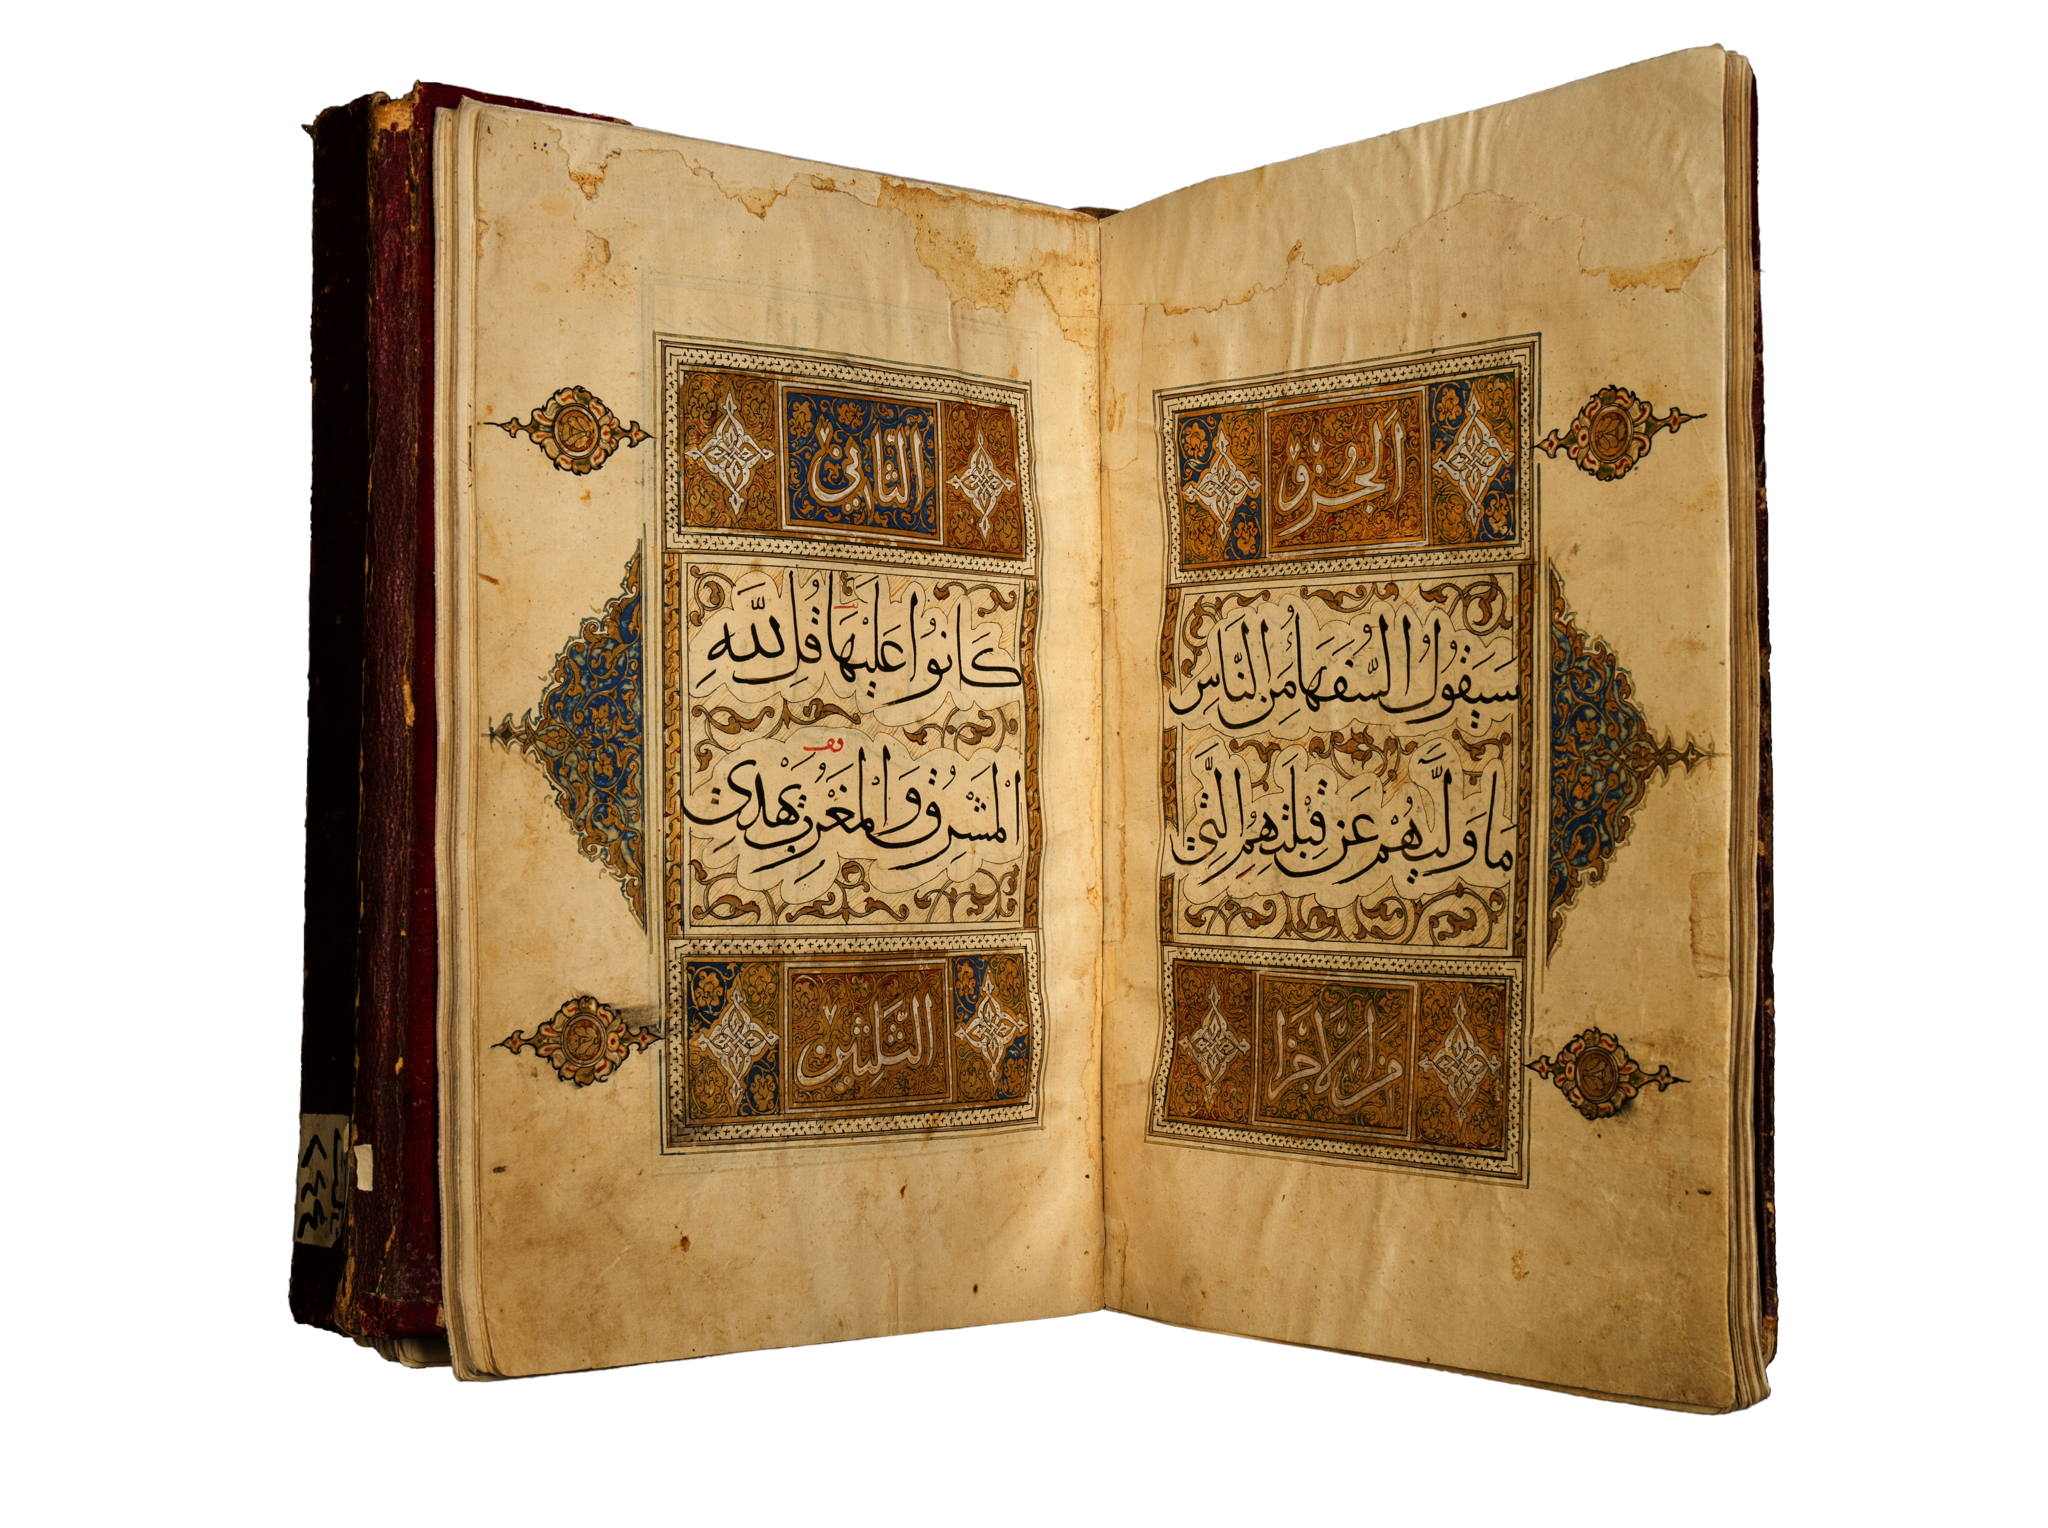 الجزؤ
سَيَقُولُ السُّفَهَاُ مِنَ النَّاسِ
مَا وَلَّيٰهُمْ عَنْ قِبْلَتِهِمُ الَّتِي
من الاجزا
الثَّانِي
كَانُوا عَلَيْهَا قُل لِلَّهِ
الْمَشْرِقُ وَالْمَغْرِبُ يَهْدِي
الثَّلٰثِين